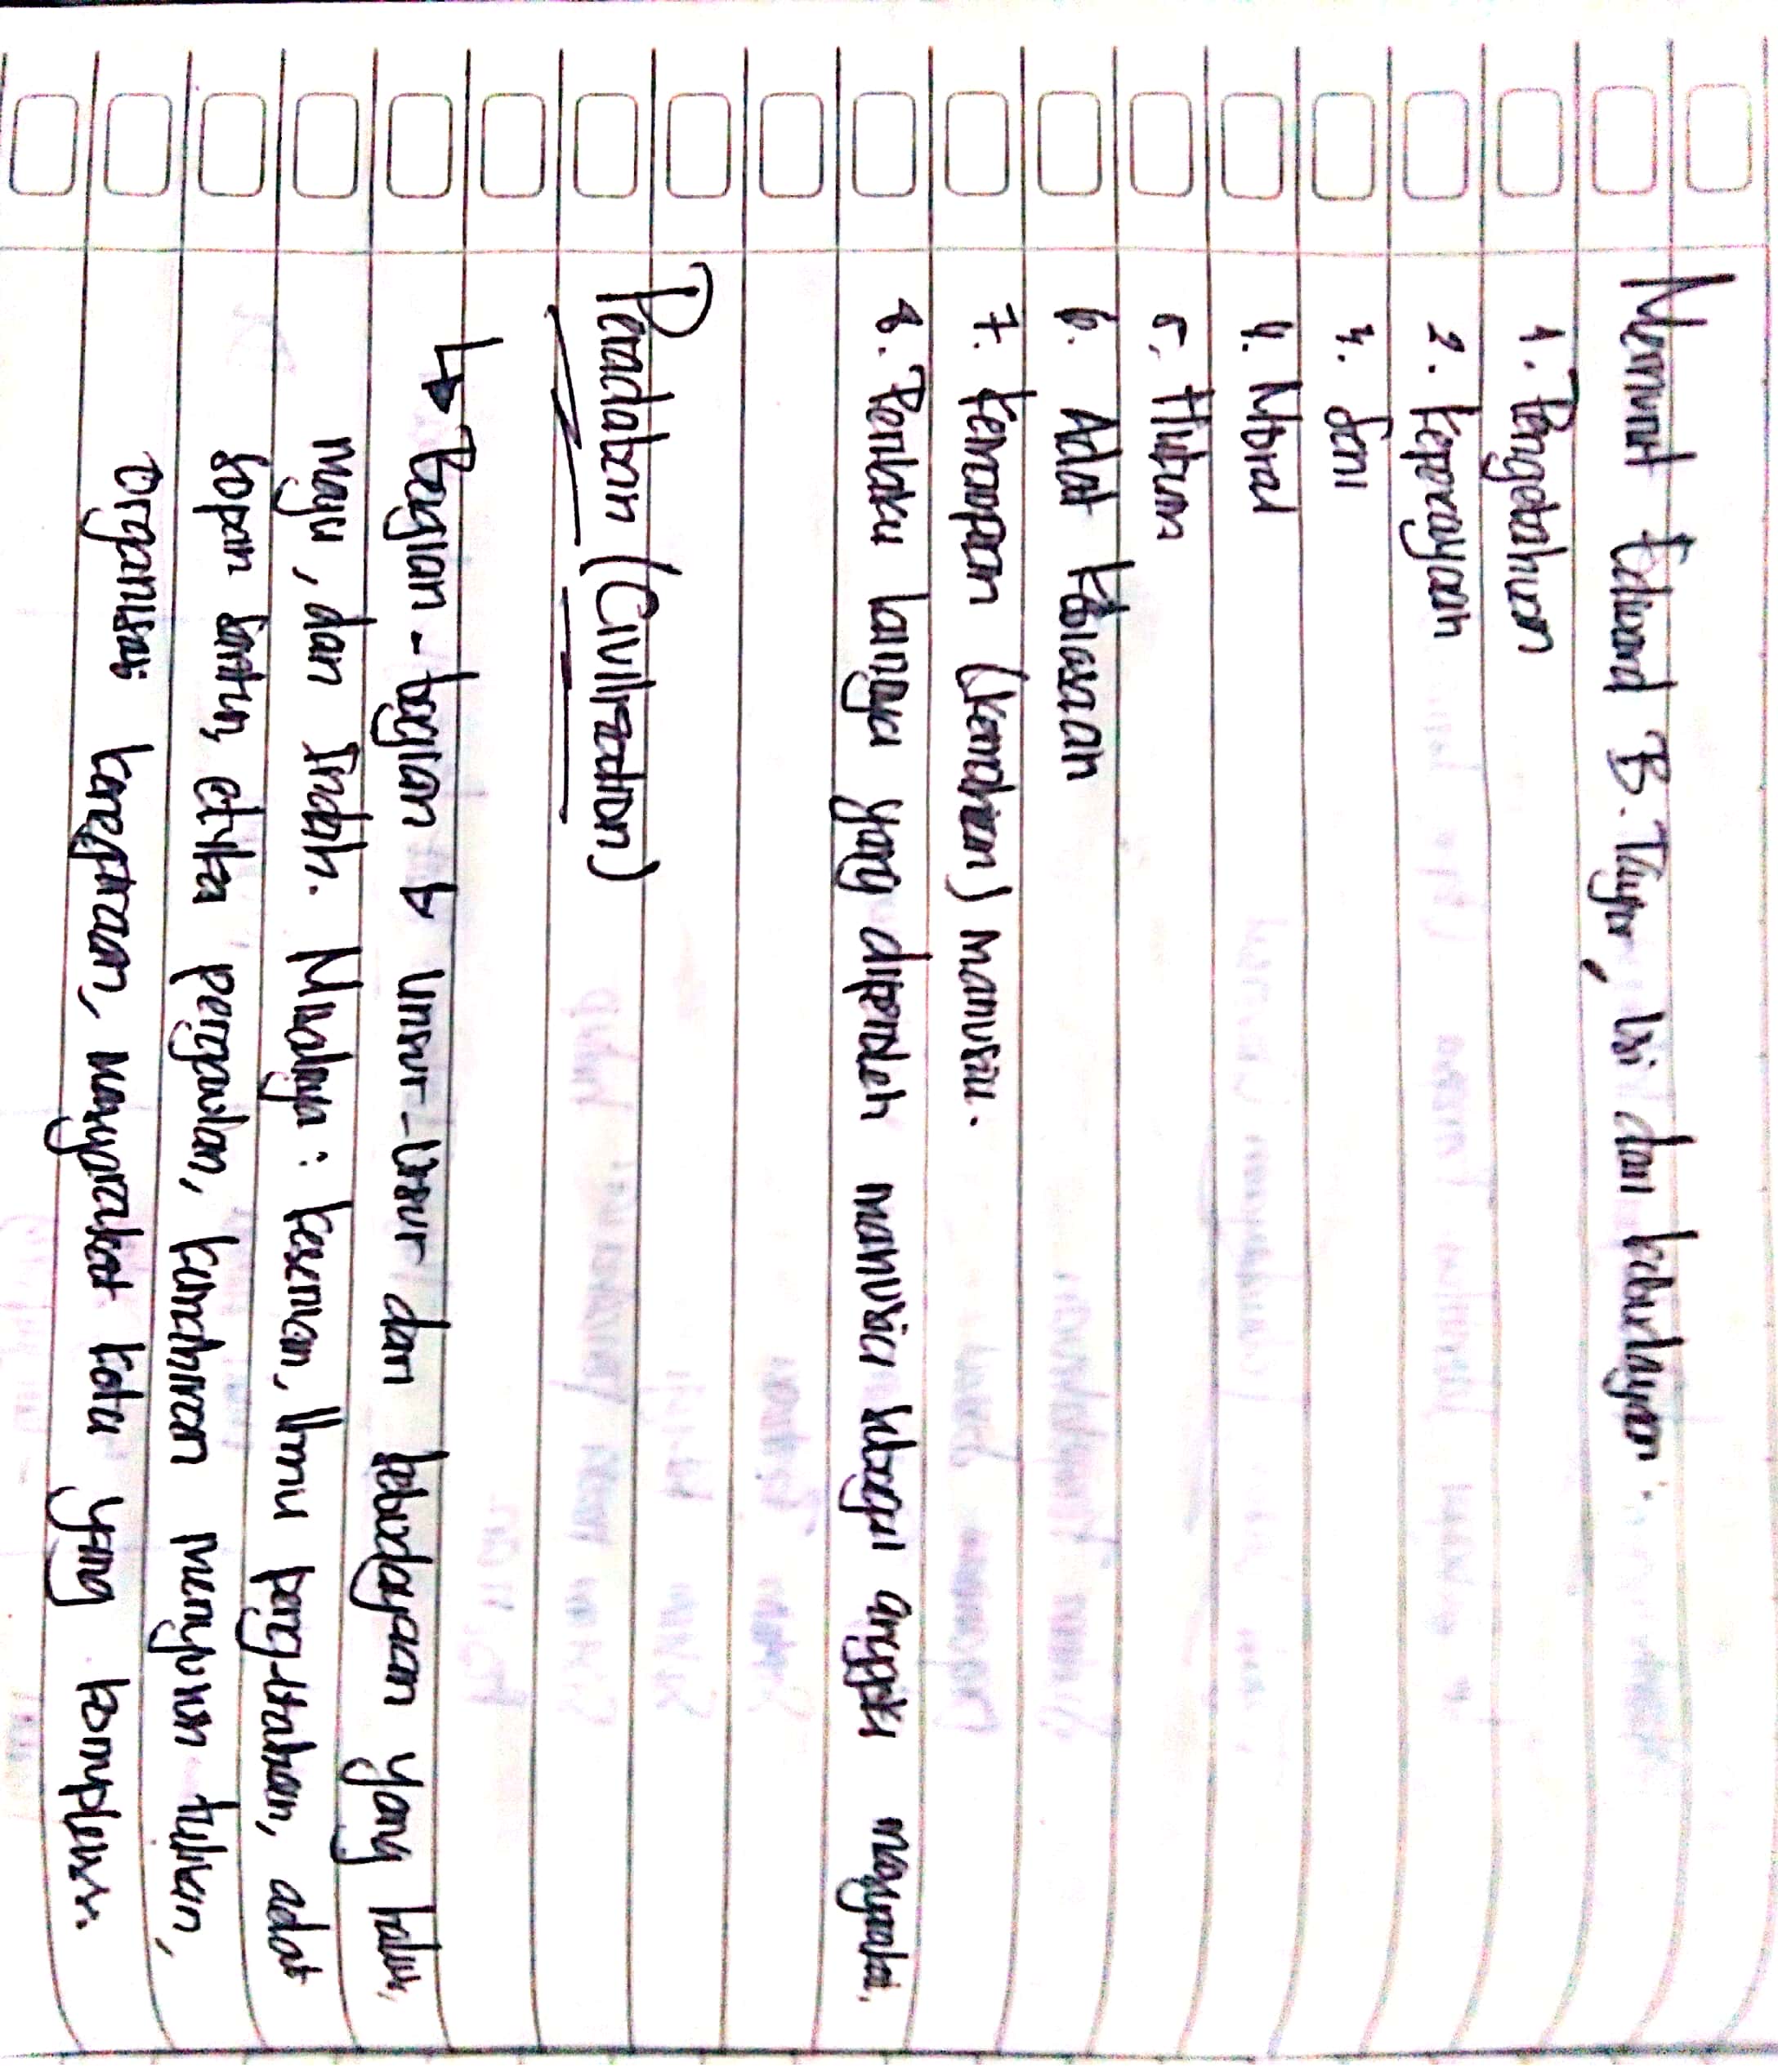 Menurut Edward B. Taylor, Isi dari kebudayaan.
1. Pengetahuan
2. Kepercayaan
3. Seni
4. Moral
5. Hukum
6. Adat Kebiasaan
7. Kemampuan (kemahiran) manusia.
8. Perilaku lainnya yang diperoleh manusia sebagai anggota masyarakat.
Peradaban (Civilization)
↳ Bagian - bagian & unsur-unsur dari kebudayaan yang halus,
maju, dan Indah. Misalnya : kesenian, Ilmu pengetahuan, adat
sopan santun, etika pergaulan, kemahiran menyusun tulisan,
organisasi kenegaraan, masyarakat kota yang kompleks.